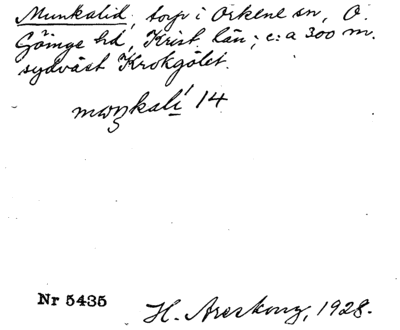 Munkalid, torp i Örkene sn, Ö.
Göinge hd, Krist. län; c:a 300 m.
sydväst Krokgölet.
muŋkali 14
Nr 5435
H. Areskoug, 1928.